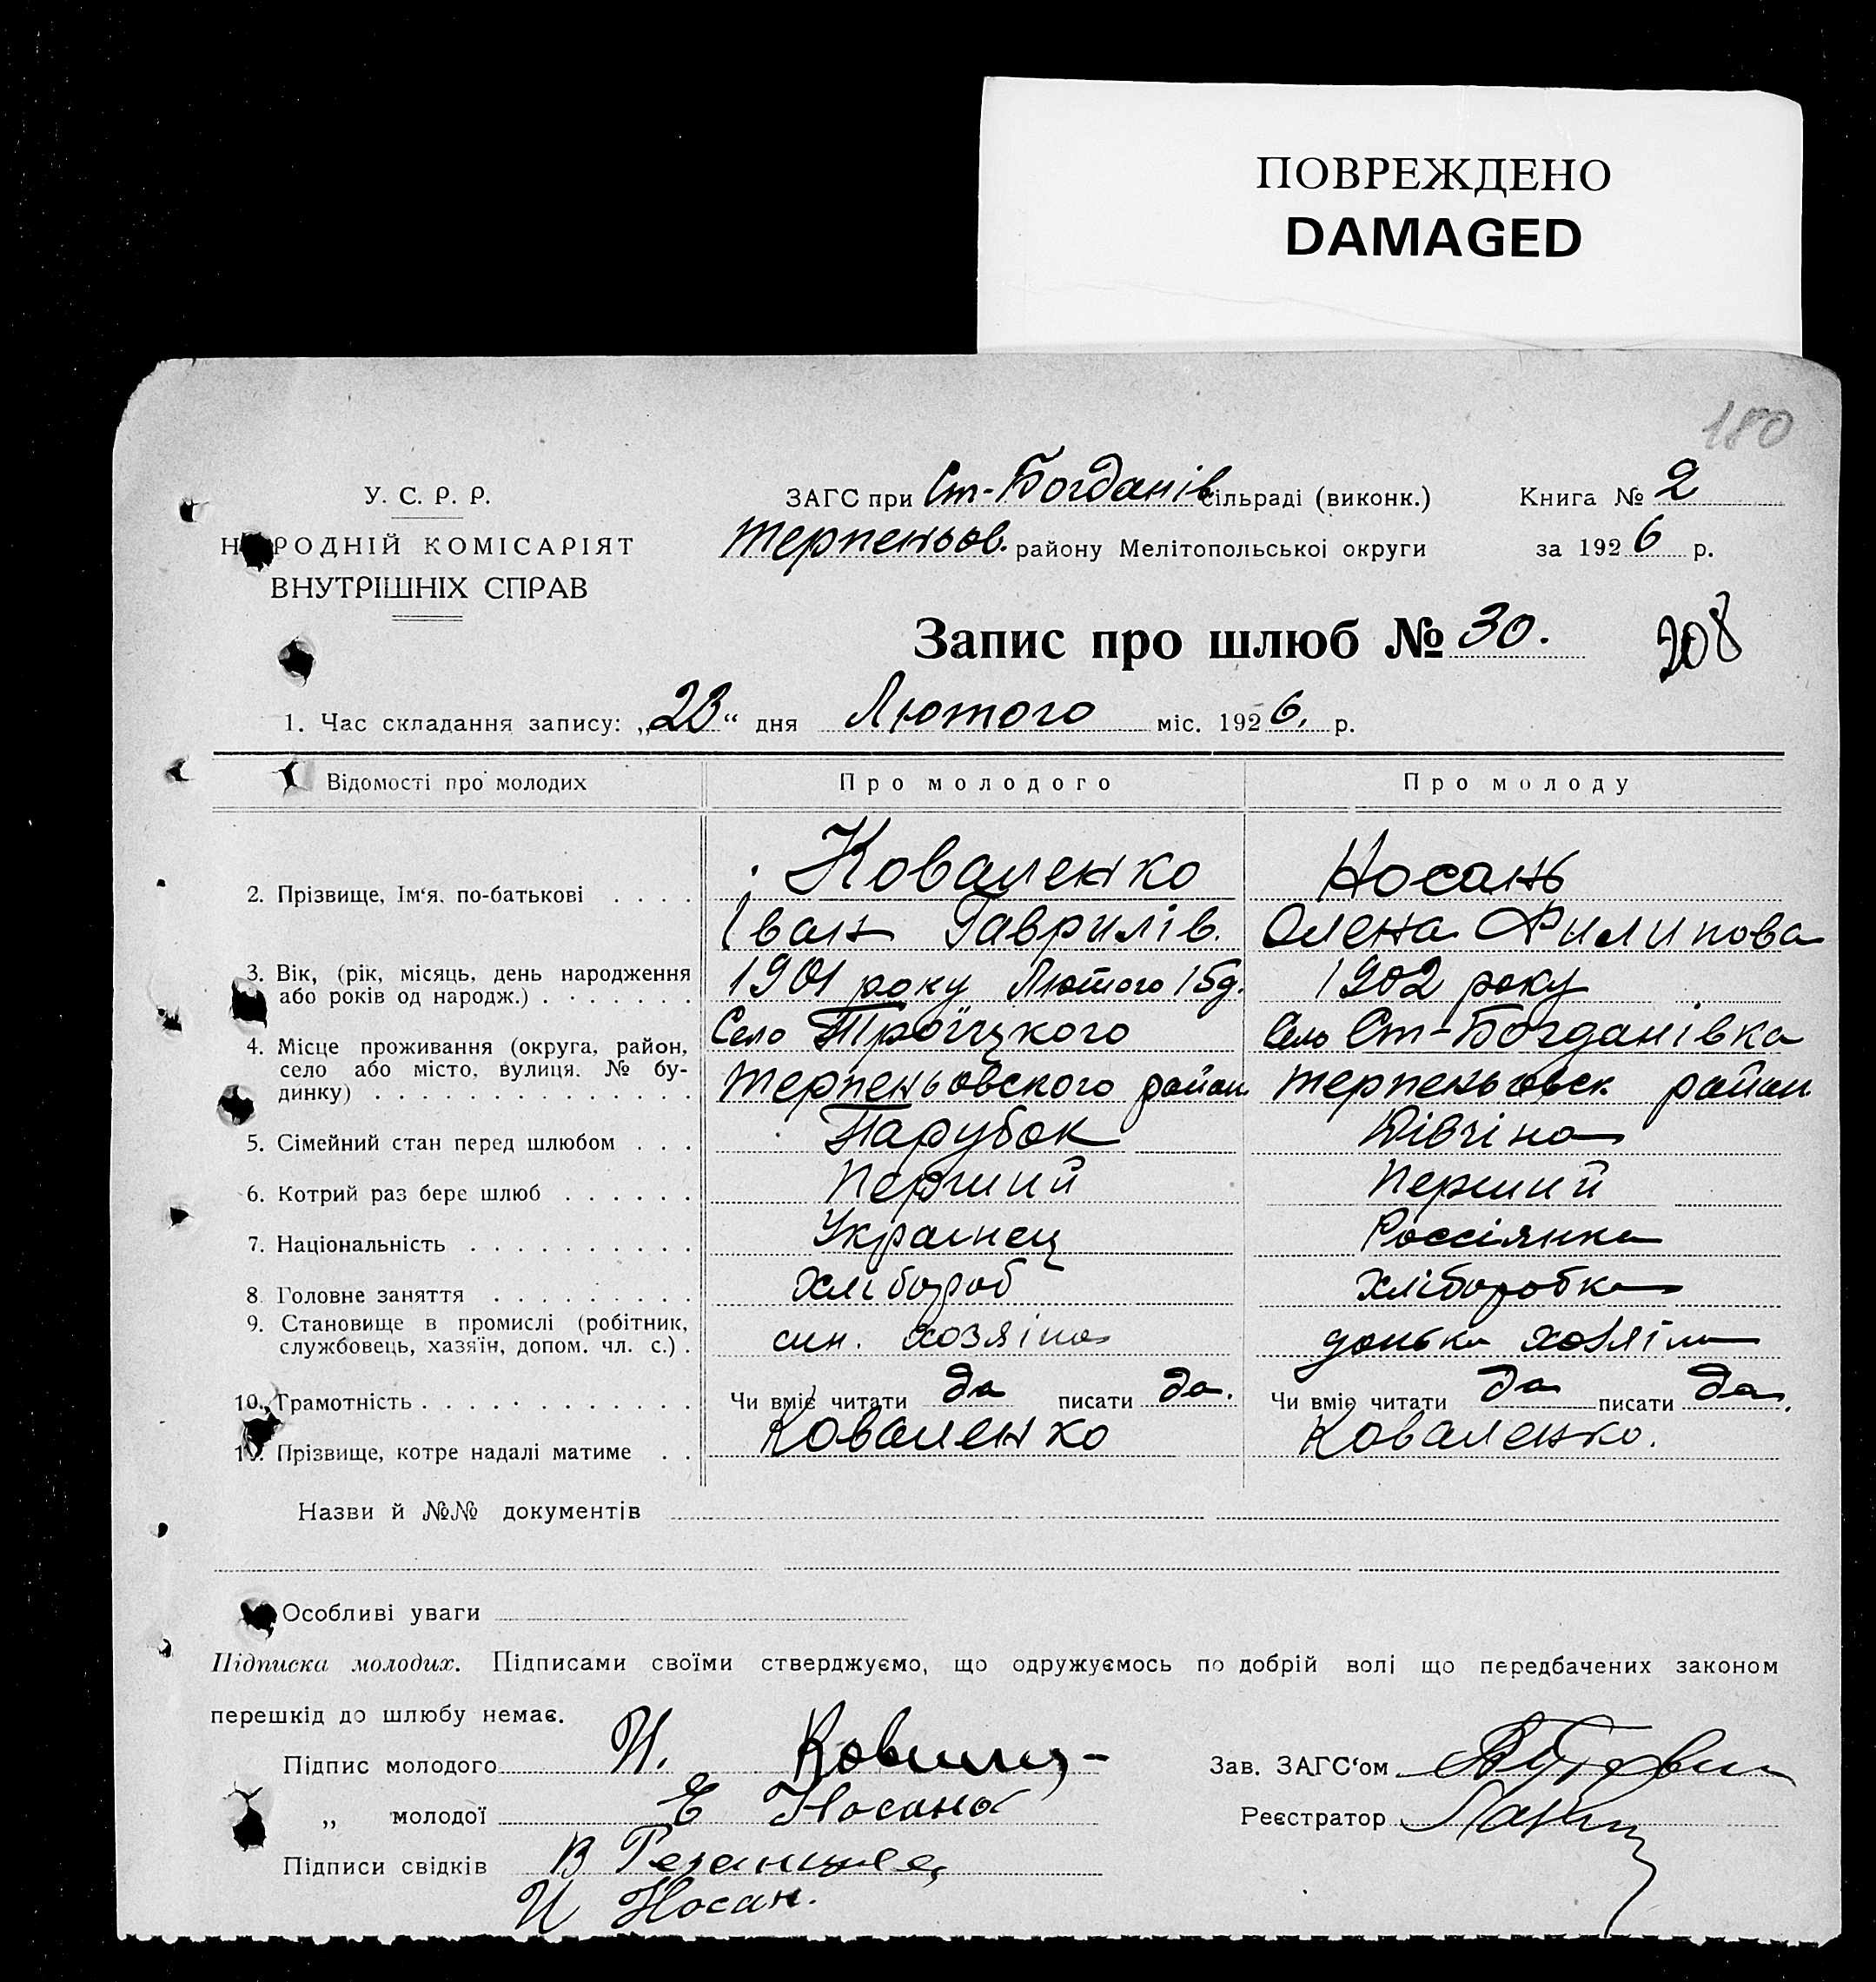 ПОВРЕЖДЕНО
DAMAGED
180
У. С. Р. Р.
НАРОДНІЙ КОМІСАРІЯТ
ВНУТРІШНІХ СПРАВ
ЗАГС при Ст-Богданів сільраді (виконк.) Книга № 2
Терпеньов. району Мелітопольської округи за 1926 р.
Запис про шлюб № 30. 208
1. Час складання запису: „23“ дня Лютого міс. 1926. р.
Відомості про молодих Про молодого Про молоду
Коваленко Носань
2. Прізвище, Ім‘я, по-батькові . . . . Іван Гаврилів. Олена Филипова
3. Вік, (рік, місяць, день народження 1901 року Лютого 15д. 1902 року
або років од народж.) . . . . . . .
4. Місце проживання (округа, район, Село Троїцкого Село Ст-Богданівка
село або місто, вулиця, № бу-
динку) . . . . . . . . . . . . . Терпеньовского район Терпеньовск район
5. Сімейний стан перед шлюбом . . . Парубок Дівчіна
6. Котрий раз бере шлюб . . . . . . Перший Перший
7. Національність . . . . . . . . . . Украінец Россіянка
8. Головне заняття . . . . . . . . . Хлібороб Хліборобка
9. Становище в промислі (робітник,
службовець, хазяїн, допом. чл. с.) . син. хозяіна донька хозяіна
10. Грамотність . . . . . . . . . . . . Чи вміє читати да писати да. Чи вміє читати да писати да.
11. Прізвище, котре надалі матиме . . Коваленко Коваленко.
Назви й №№ документів
Особливі уваги
Підписка молодих. Підписами своїми стверджуємо, що одружуємось по добрій волі що передбачених законом
перешкід до шлюбу немає.
Підпис молодого И. Зав. ЗАГС‘ом
„ молодої Е Носана Реєстратор
Підписи свідків В
И Носан.